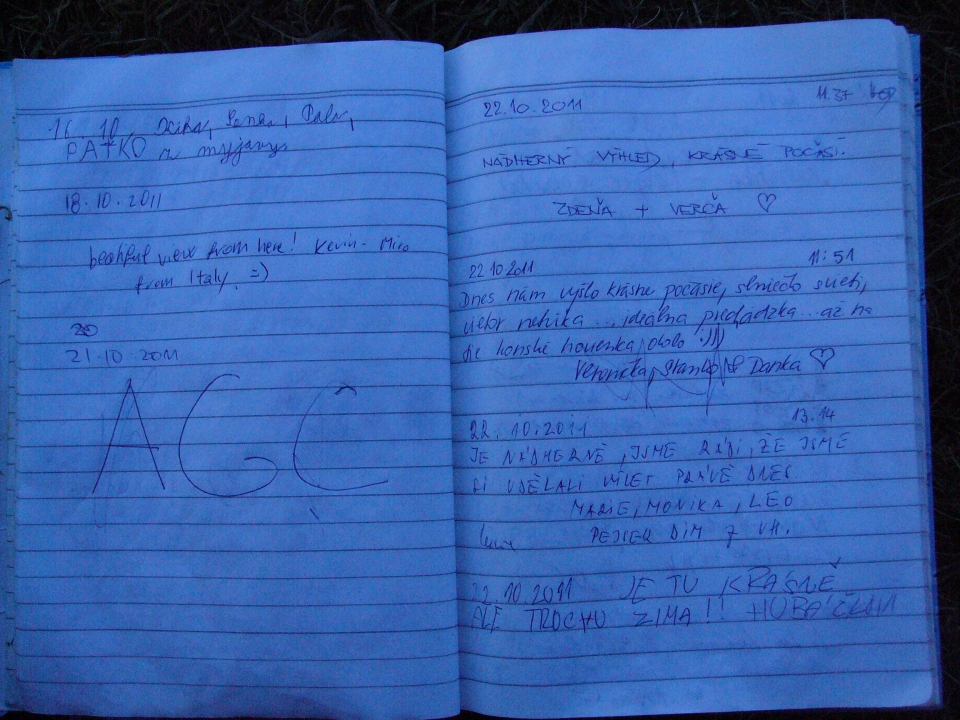 16. 10.
PAŤKO z myjavy
18.10.2011
beatiful view from here! Kevin - Mico
from Italy. =)
20
21.10.2011
AGČ
22.10.2011 11.37
NÁDHERNÝ VÝHLED, KRÁSNÉ POČASÍ.
ZDEŇA + VERČA ♡
22 10 2011 11:51
Dnes nám vyšlo krásne počasie, slniečko svieti,
vietor nefúka ... ideálna prechádzka ... až na
tie konské hovienka okolo :)))
Veronička, Danka ♡
22.10.2011 13.14
JE NÁDHERNĚ, JSME RÁDI, ŽE JSME
SI UDĚLALI VÝLET PRÁVĚ DNES
MARIE, MONIKA, LEO
22.10.2011 JE TU KRÁSNĚ
ALE TROCHU ZIMA!! HUBÁČKOVI